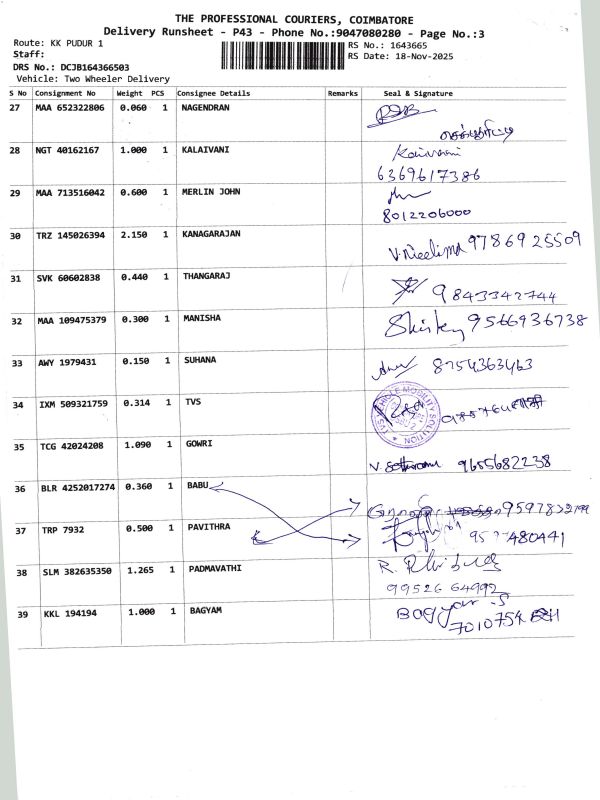 THE PROFESSIONAL COURIERS, COIMBATORE
Delivery Runsheet - P43 - Phone No.:9047080280 - Page No.:3
Route: KK PUDUR 1
RS No.: 1643665
Staff:
RS Date: 18-Nov-2025
DRS No.: DCJB164366503
Vehicle: Two Wheeler Delivery
S No Consignment No Weight PCS Consignee Details Remarks Seal & Signature
27 MAA 652322806 0.060 1 NAGENDRAN
28 NGT 40162167 1.000 1 KALAIVANI Kalaivani
6369617386
29 MAA 713516042 0.600 1 MERLIN JOHN
8012206000
30 TRZ 145026394 2.150 1 KANAGARAJAN V.Neelima 9786925509
31 SVK 60602838 0.440 1 THANGARAJ 9843342744
32 MAA 109475379 0.300 1 MANISHA Shirley 9566936738
33 AWY 1979431 0.150 1 SUHANA 8754363463
34 IXM 509321759 0.314 1 TVS TVS VEHICLE MOBILITY SOLUTION
35 TCG 42024208 1.090 1 GOWRI
9655682238
36 BLR 4252017274 0.360 1 BABU
37 TRP 7932 0.500 1 PAVITHRA 480441
38 SLM 382635350 1.265 1 PADMAVATHI
99526 64992
39 KKL 194194 1.000 1 BAGYAM Bagyam .S
7010754